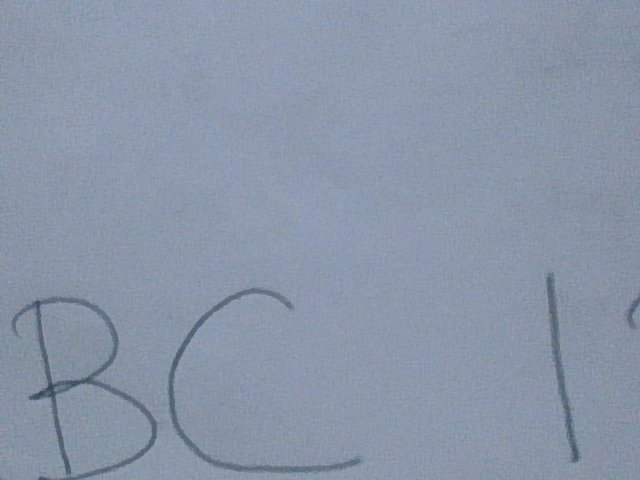 BC 1